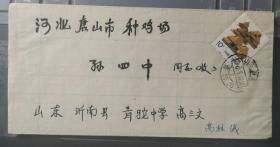 河北唐山市种鸡场
孙四中 同志收
山东沂南县青驼中学高三文
高桂成